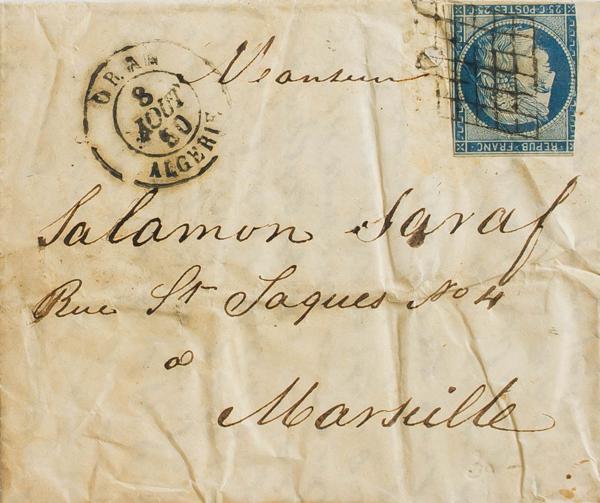 25 C · POSTES · 25 C
REPUB · FRANC ·
ORAN
8
AOUT
50
ALGERIE
Monsieur
Salamon Saraf
Rue St Jaques No 4
a
Marseille